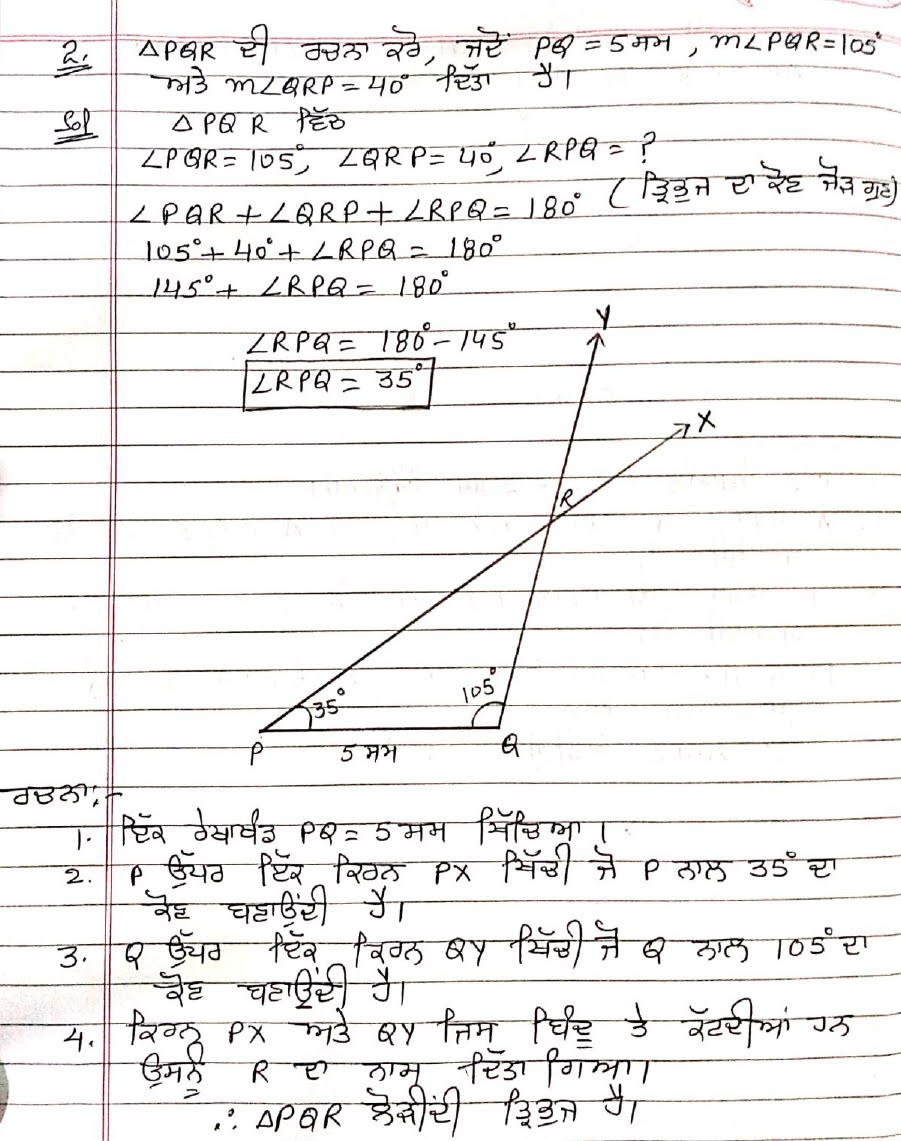 2. △PQR ਦੀ ਰਚਨਾ ਕਰੋ, ਜਦੋਂ PQ = 5 ਸਮ, m∠PQR = 105°
ਅਤੇ m∠QRP = 40° ਦਿੱਤਾ ਹੈ।
Sol △PQR ਵਿੱਚ
∠PQR = 105°, ∠QRP = 40°, ∠RPQ = ?
∠PQR + ∠QRP + ∠RPQ = 180° (ਤ੍ਰਿਭੁਜ ਦਾ ਕੋਣ ਜੋੜ ਗੁਣ)
105° + 40° + ∠RPQ = 180°
145° + ∠RPQ = 180°
∠RPQ = 180° – 145°
∠RPQ = 35°
Y
X
R
35°
105°
P
5 ਸਮ
Q
ਰਚਨਾ:-
1. ਇੱਕ ਰੇਖਾਖੰਡ PQ = 5 ਸਮ ਖਿੱਚਿਆ।
2. P ਉੱਪਰ ਇੱਕ ਕਿਰਨ PX ਖਿੱਚੀ ਜੋ P ਨਾਲ 35° ਦਾ
ਕੋਣ ਬਣਾਉਂਦੀ ਹੈ।
3. Q ਉੱਪਰ ਇੱਕ ਕਿਰਨ QY ਖਿੱਚੀ ਜੋ Q ਨਾਲ 105° ਦਾ
ਕੋਣ ਬਣਾਉਂਦੀ ਹੈ।
4. ਕਿਰਨ PX ਅਤੇ QY ਜਿਸ ਬਿੰਦੂ ਤੇ ਕੱਟਦੀਆਂ ਹਨ
ਉਸਨੂੰ R ਦਾ ਨਾਮ ਦਿੱਤਾ ਗਿਆ।
∴ △PQR ਲੋੜੀਂਦੀ ਤ੍ਰਿਭੁਜ ਹੈ।